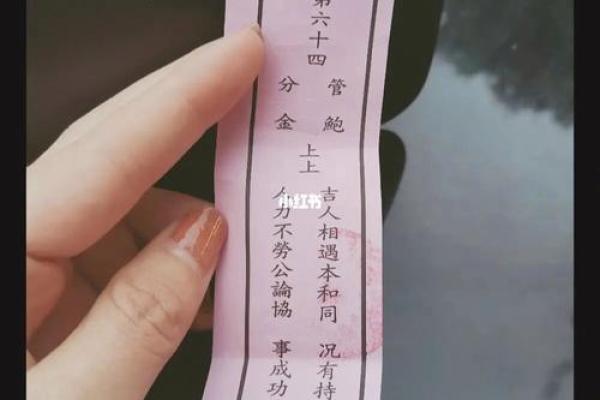 第六十四
管鮑
分金
上上
吉人相遇本和同 况有持
人力不勞公論協 事成功
小红书